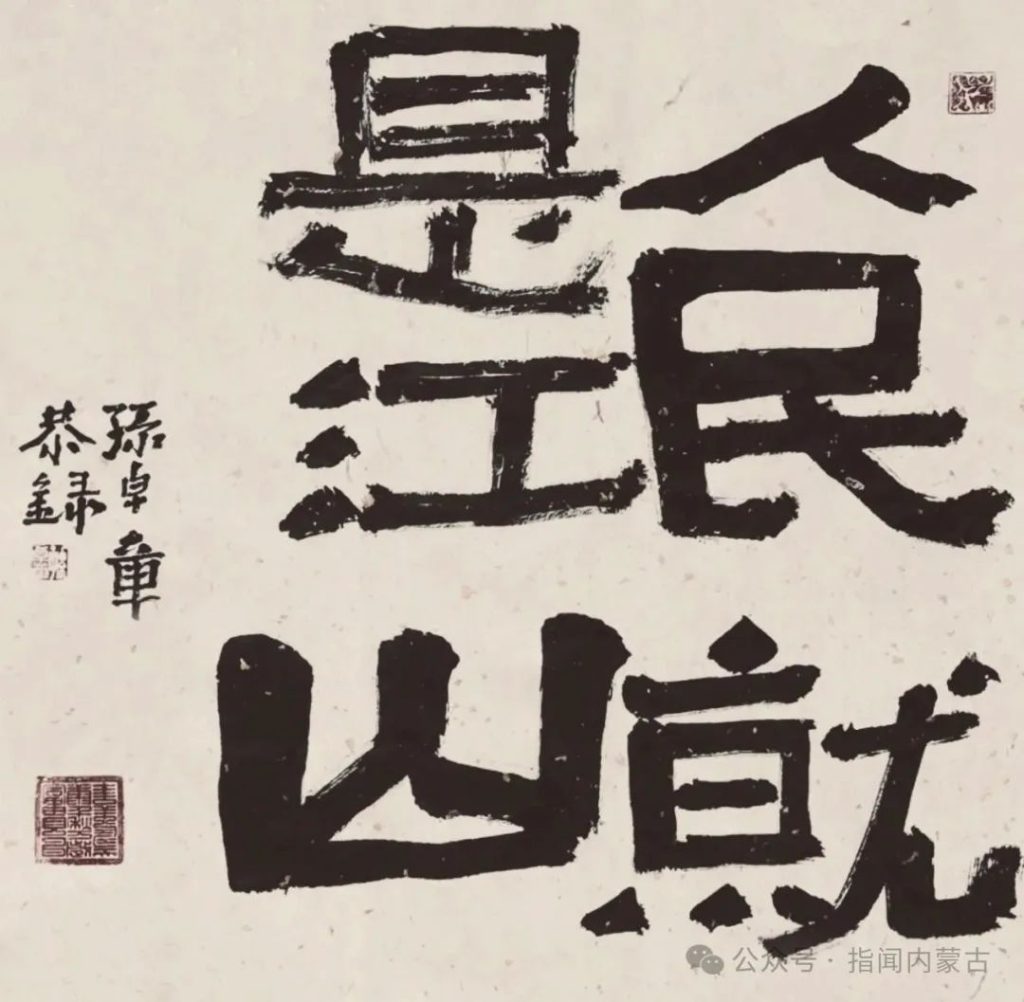 人民就
是江山
孫卓章
恭録
公众号·指闻内蒙古